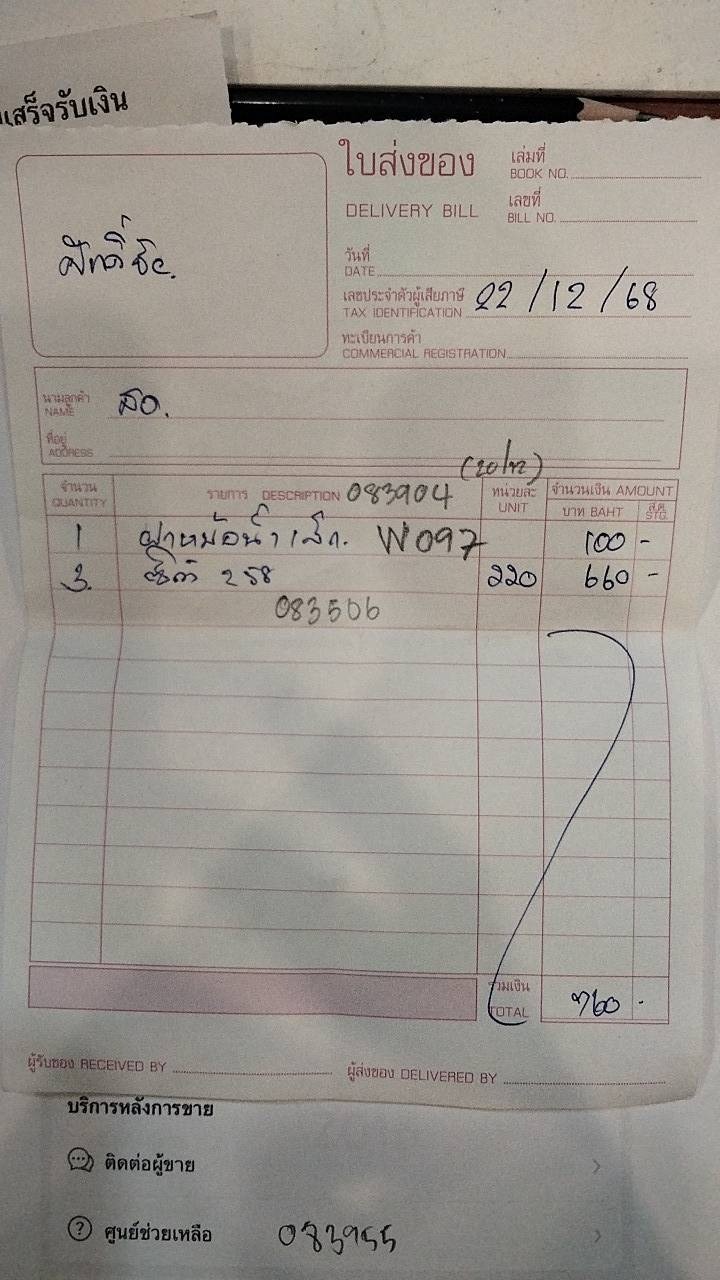 เสร็จรับเงิน
ใบส่งของ
เล่มที่
BOOK NO.
DELIVERY BILL
เลขที่
BILL NO.
ศักดิ์ชัย.
วันที่
DATE
เลขประจำตัวผู้เสียภาษี
TAX IDENTIFICATION 22/12/68
ทะเบียนการค้า
COMMERCIAL REGISTRATION
นามลูกค้า
NAME
ที่อยู่
ADDRESS
(20/12)
จำนวน
QUANTITY
รายการ DESCRIPTION 083904
หน่วยละ
UNIT
จำนวนเงิน AMOUNT
บาท BAHT
ส.ต.
STG.
1 ฝาหม้อน้ำ เล็ก. W097 100 -
3. 258 220 660 -
083506
รวมเงิน
TOTAL 760 -
ผู้รับของ RECEIVED BY
ผู้ส่งของ DELIVERED BY
บริการหลังการขาย
ติดต่อผู้ขาย
ศูนย์ช่วยเหลือ 083955